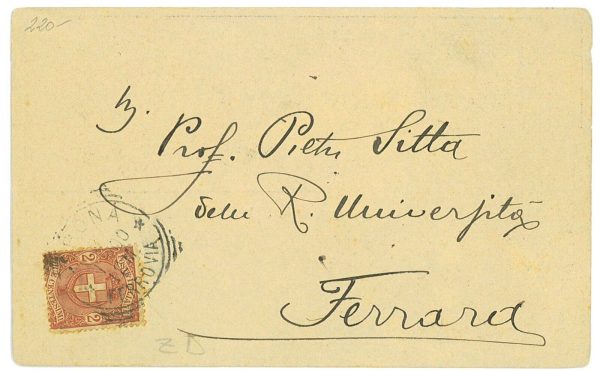 220-
Prof. Pietro Sitta
della R. Università
Ferrara
ROVIA
2 2
ZD